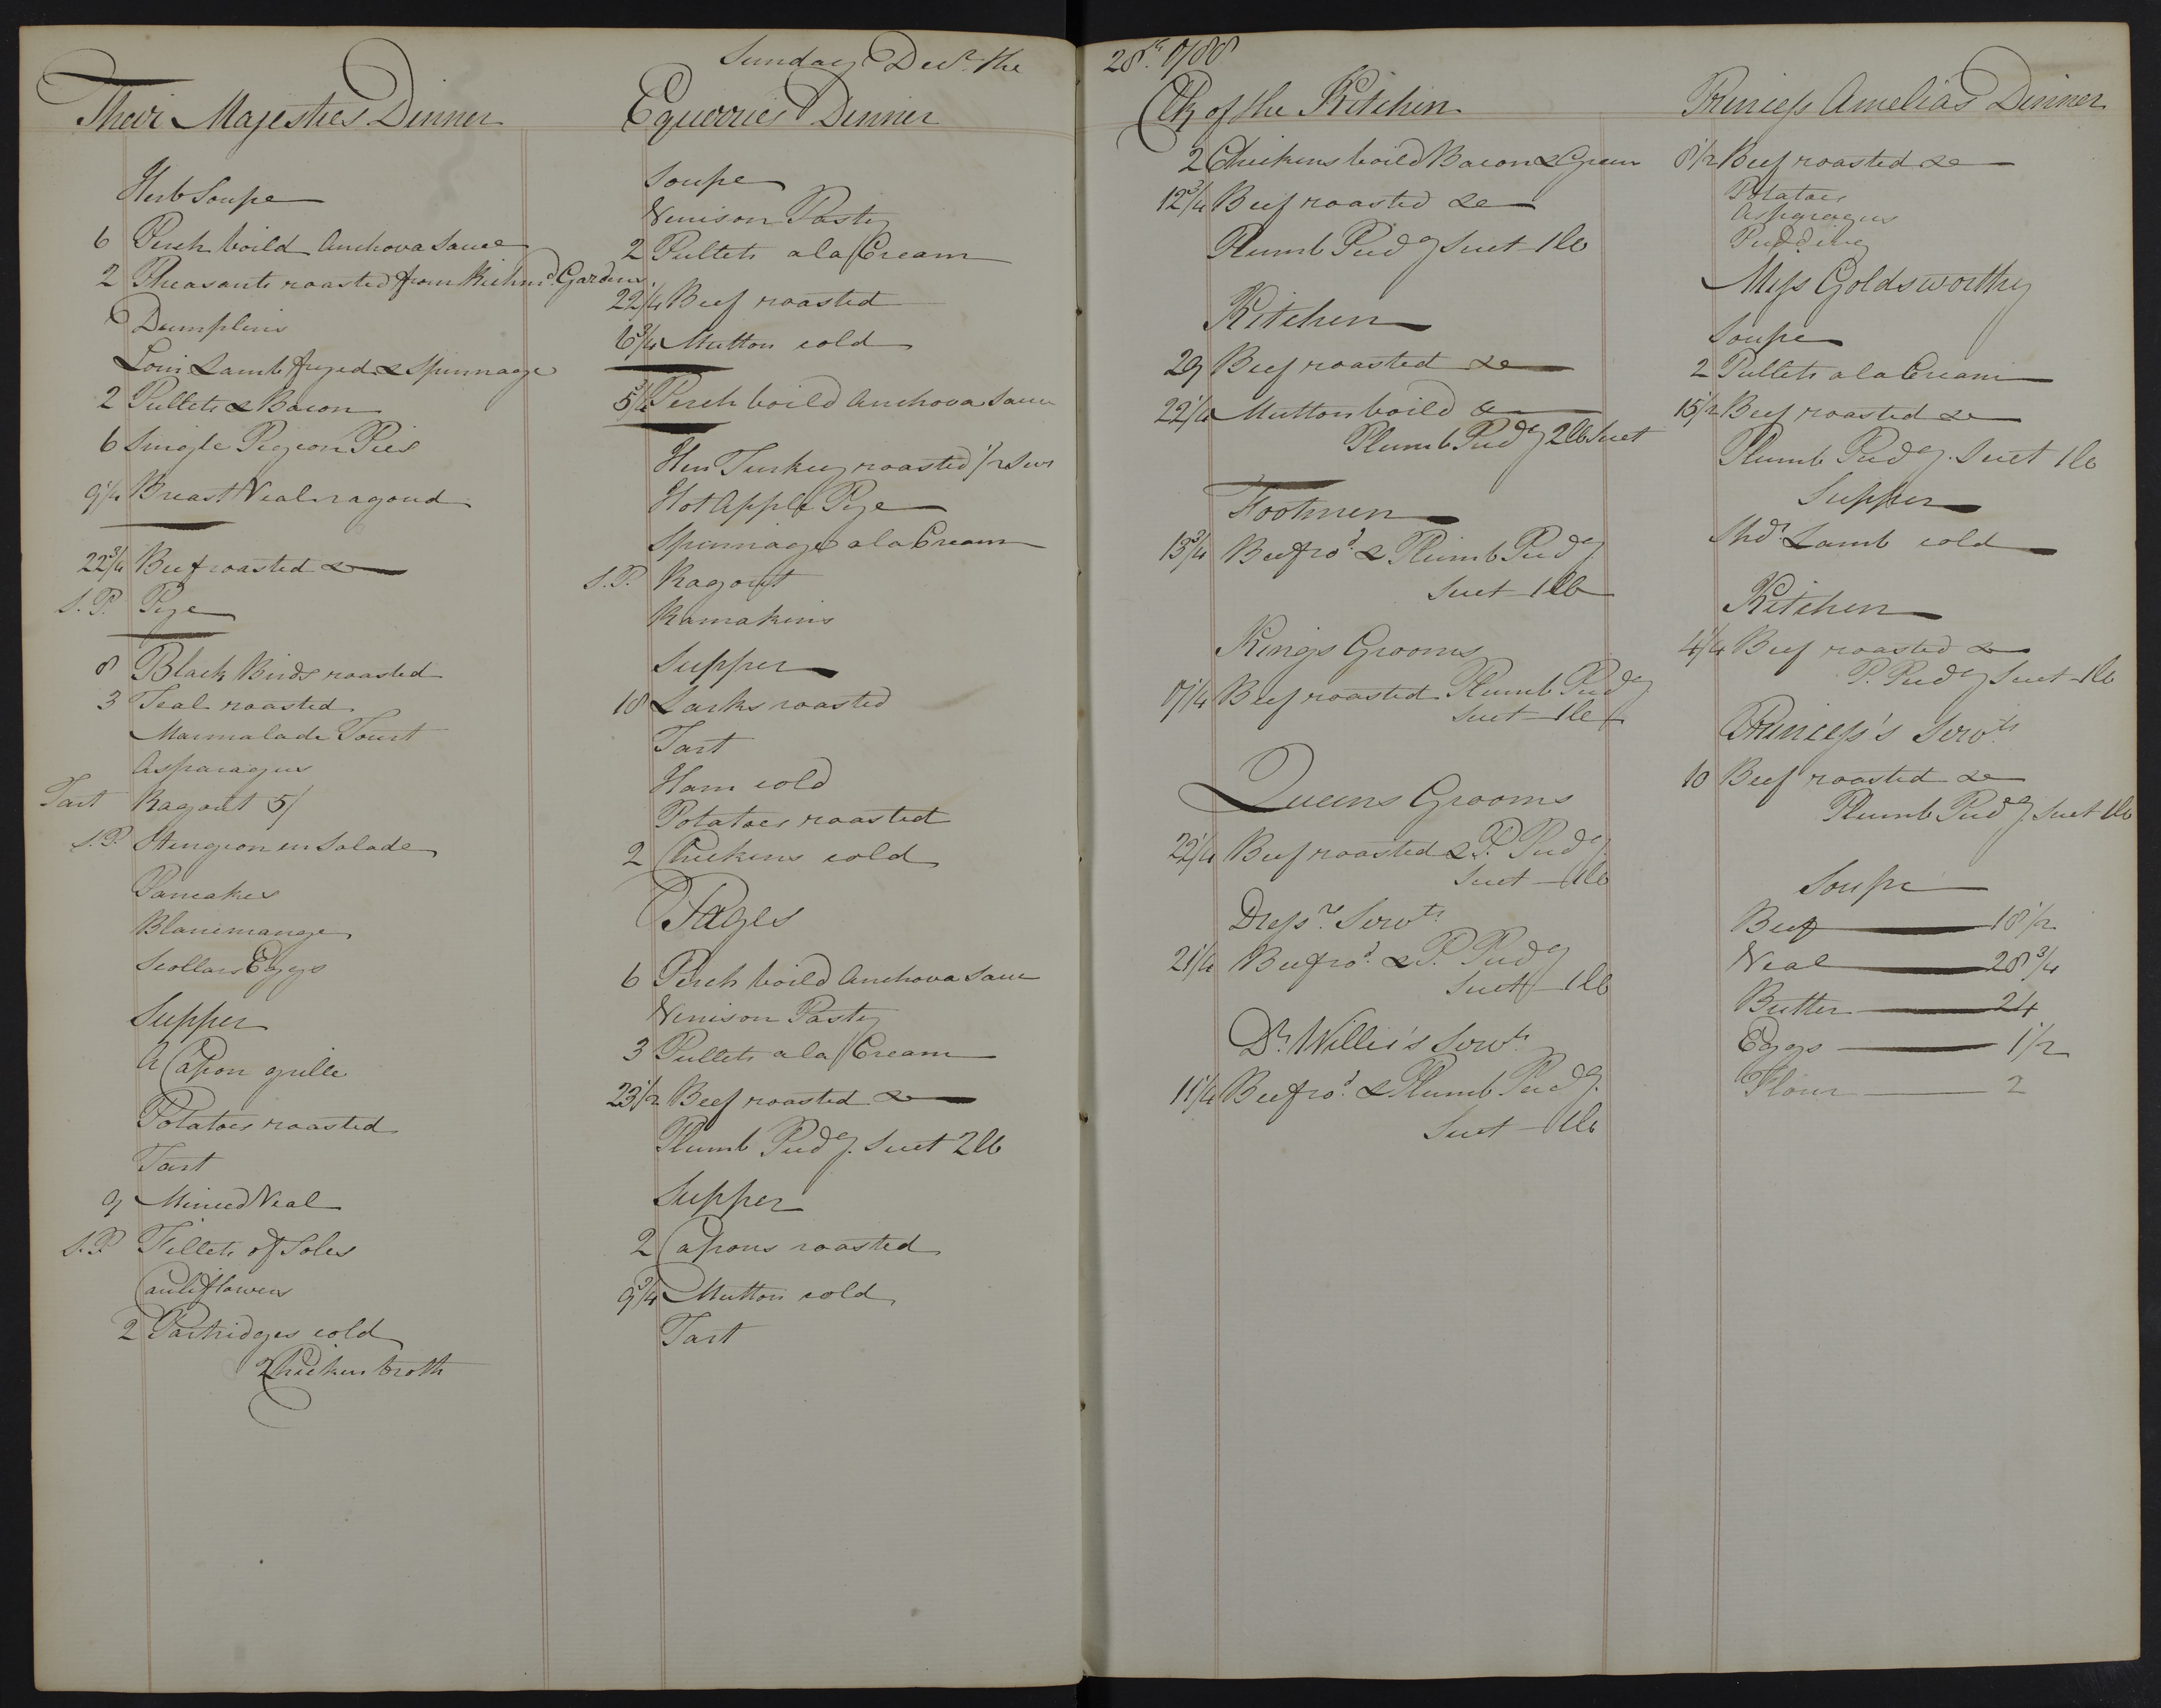 Sunday Decr. the
Their Majesties Dinner
Herb Soupe
6 Perch boild Anchova Sauce
2 Pheasants roasted from Richmd. Gardens
Dumplins
Loin Lamb fryed & Spinnage
2 Pullets & Bacon
6 Single Pigeon Pies
9 1/4 Breast Veal ragoud
22 3/4 Beef roasted &c
S.P. Pye
8 Black Birds roasted
3 Teal roasted
Marmalade Tourt
Asparagus
Tart Ragout 5/
S.P. Sturgeon en Salade
Pancakes
Blancmange
Scollard Eggs
Supper
A Capon grille
Potatoes roasted
Tart
9 Minced Veal
S.P. Fillets of Soles
Cauliflowers
2 Partridges cold
2 Chicken broth
Equerries Dinner
Soupe
Venison Pasty
2 Pullets a la Cream
22 1/4 Beef roasted
6 3/4 Mutton cold
5 3/4 Perch boild Anchova Sauce
Hen Turkey roasted
Hot Apple Pye
Spinnage a la Cream
S.P. Ragout
Ramakins
Supper
18 Larks roasted
Tart
Ham cold
Potatoes roasted
2 Chickens cold
Pages
6 Perch boild Anchova Sauce
Venison Pasty
3 Pullets a la Cream
23 1/2 Beef roasted &c
Plumb Pudg. Suet 2 lb
Supper
2 Capons roasted
9 3/4 Mutton cold
Tart
28th. 1788
Clk of the Kitchin
2 Chickens boild Bacon & Green
12 3/4 Beef roasted &c
Plumb Pudg Suet 1 lb
Kitchen
29 Beef roasted &c
22 1/4 Mutton boild &c
Plumb Pudg 2 lb Suet
Footmen
13 3/4 Beef rod. & Plumb Pudg
Suet 1 lb
Kings Grooms
17 1/4 Beef roasted Plumb Pudg
Suet 1 lb
Queens Grooms
22 1/4 Beef roasted & P. Pudg.
Suet 1 lb
Dressrs. Servts.
21 1/4 Beef rod. & P. Pudg
Suet 1 lb
Dr. Willis's Servts.
11 1/4 Beef rod. & Plumb Pudg.
Suet 1 lb
Princess Amelia's Dinner
8 1/2 Beef roasted &c
Potatoes
Asparagus
Pudding
Miss Goldsworthy
Soupe
2 Pullets a la Cream
15 1/2 Beef roasted &c
Plumb Pudg. Suet 1 lb
Supper
Shdr. Lamb cold
Kitchen
Beef roasted &c
P. Pudg Suet 1 lb
Princess's Servts.
10 Beef roasted &c
Plumb Pudg Suet 1 lb
Soupe
Beef 18 1/2
Veal 28 3/4
Butter 24
Eggs 1 1/2
Flour 2